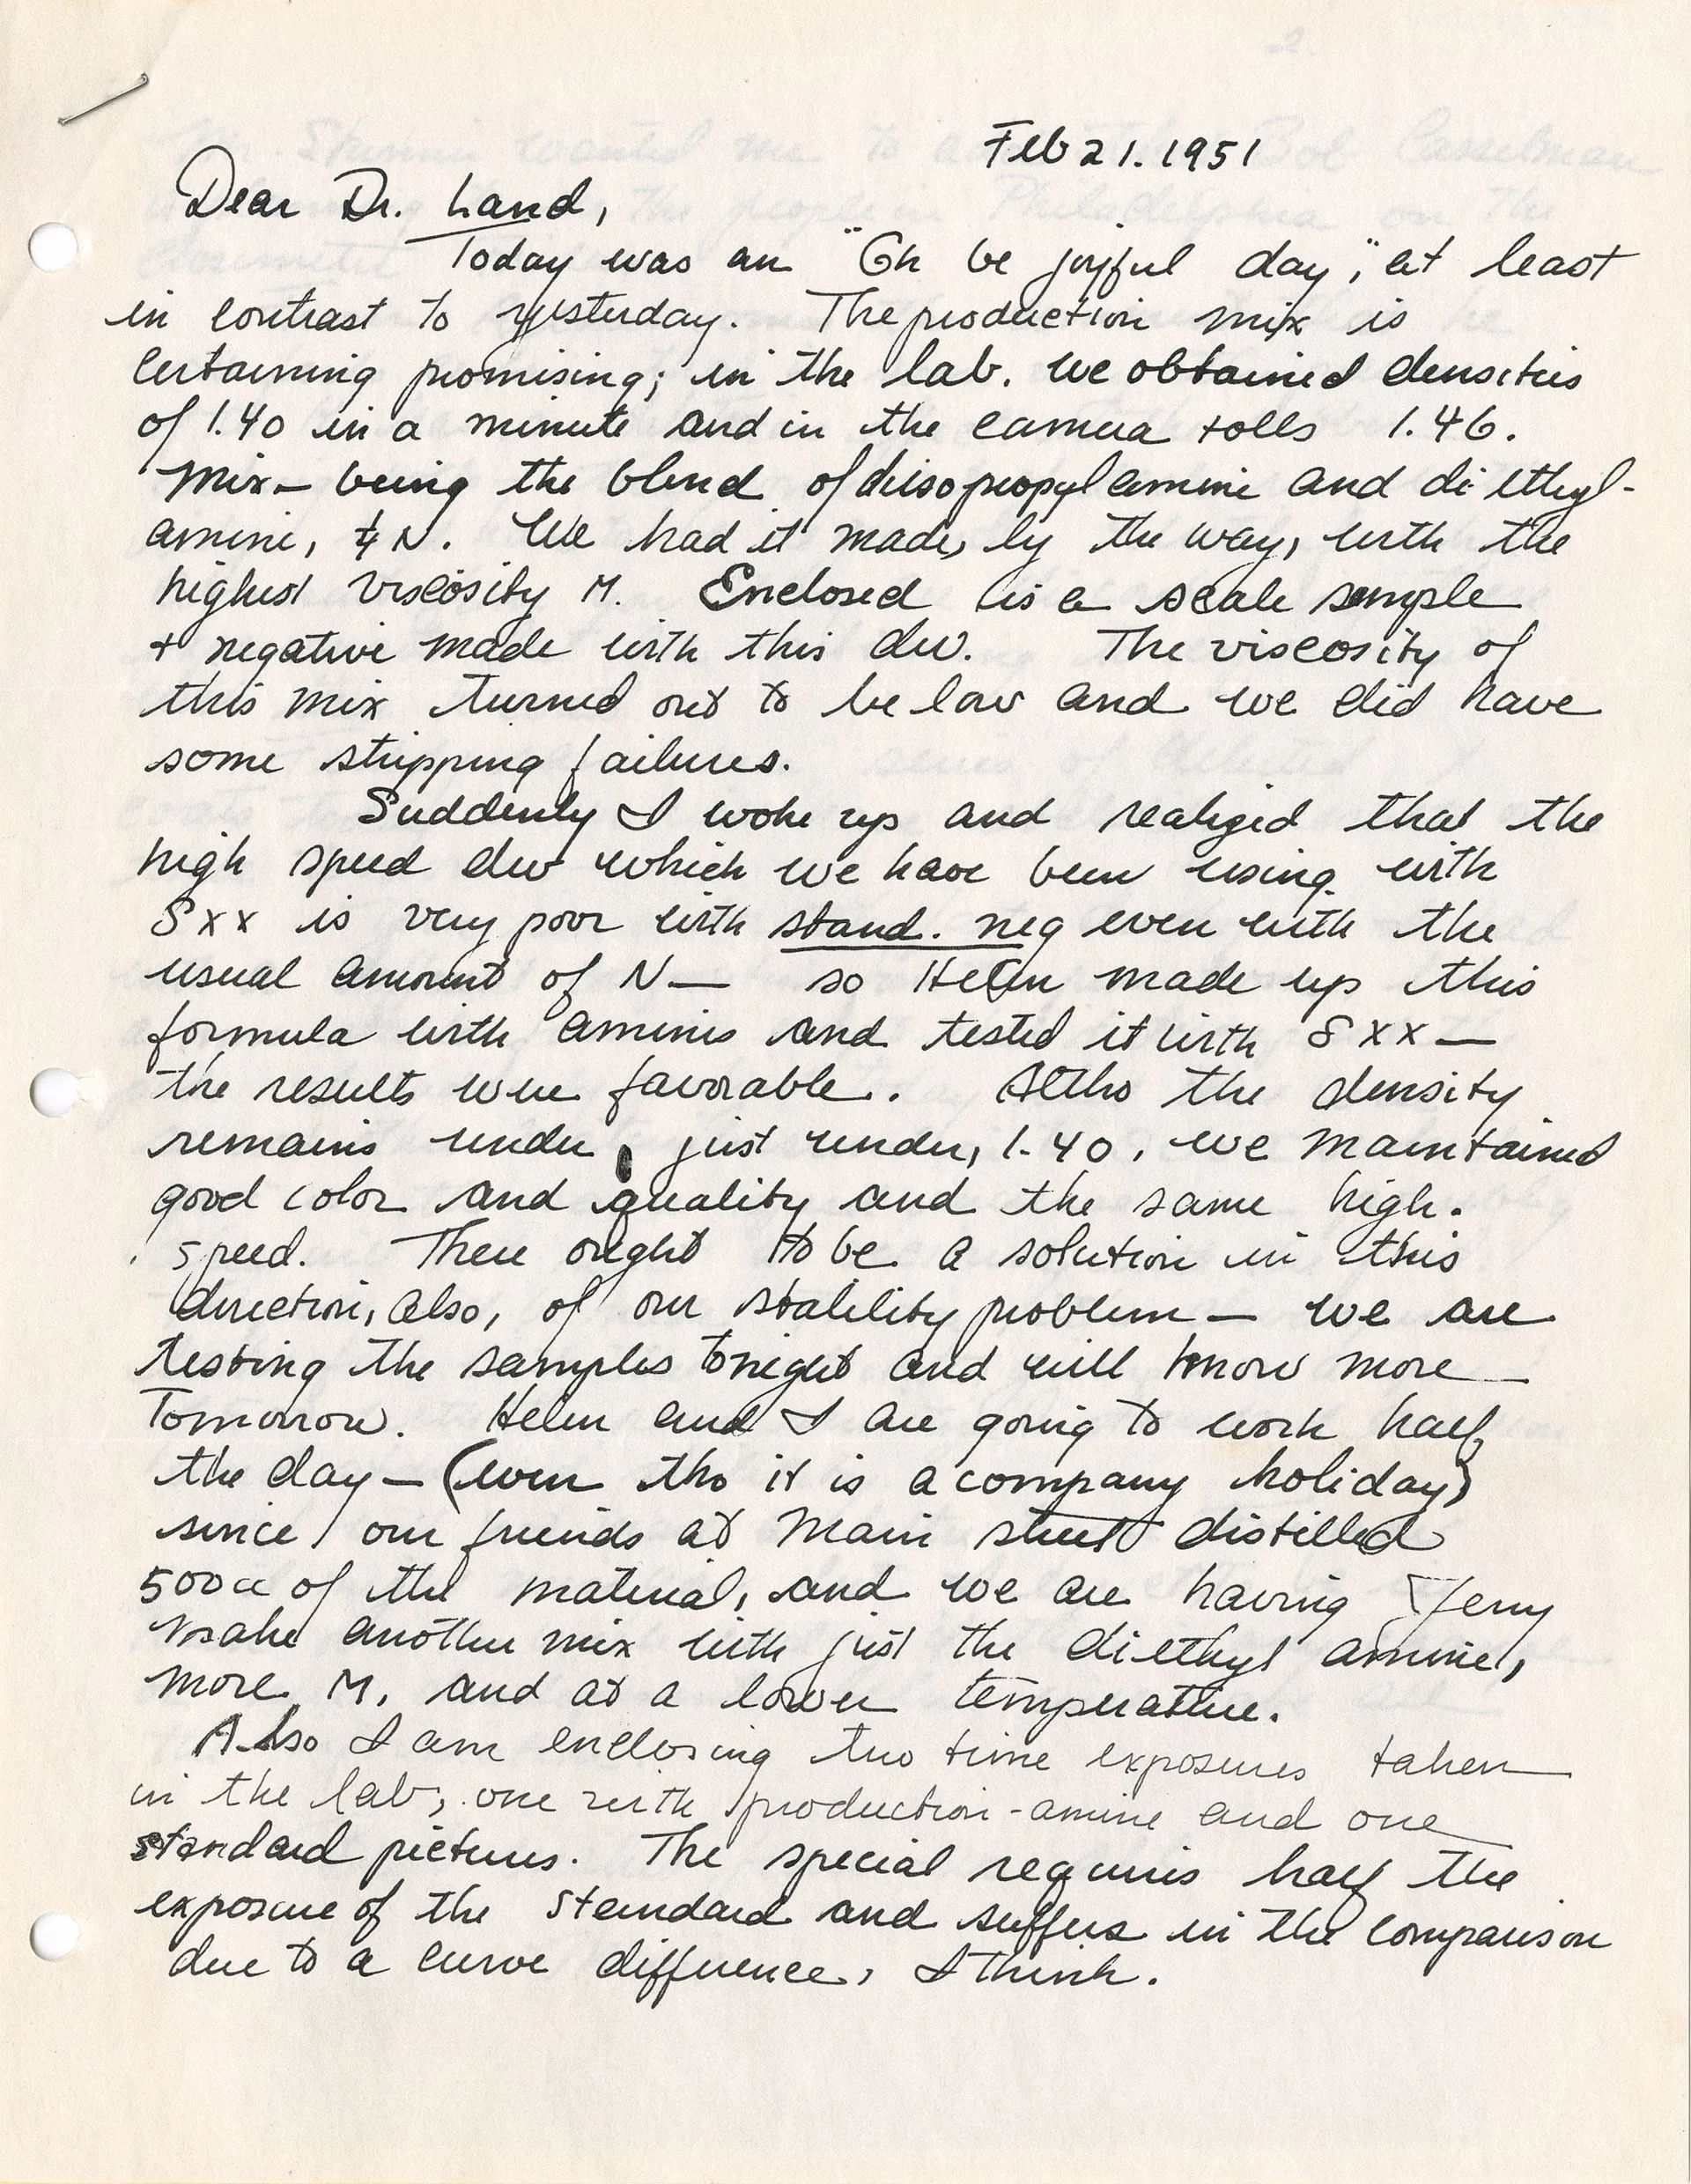 Feb 21. 1951
Dear Dr. Land,
Today was an "Oh be joyful day", at least
in contrast to yesterday. The production mix is
certaining promising; in the lab. we obtained densities
of 1.40 in a minute and in the camera rolls 1.46.
Mix — being the blend of diisopropylamine and diethyl-
amine, & N. We had it made, by the way, with the
highest viscosity M. Enclosed is a scale sample
+ negative made with this dev. The viscosity of
this mix turned out to be low and we did have
some stripping failures.
Suddenly I woke up and realized that the
high speed dev which we have been using with
SXX is very poor with stand. neg even with the
usual amount of N — so Helen made up this
formula with amines and tested it with SXX —
the results were favorable. Altho the density
remains under, just under, 1.40, we maintained
good color and quality and the same high.
speed. There ought to be a solution in this
direction, also, of our stability problem — we are
testing the samples tonight and will know more
Tomorrow. Helen and I are going to work half
the day — (even tho it is a company holiday)
since our friends at Main street distilled
500cc of the material, and we are having Jerry
make another mix with just the diethyl amine,
more M, and at a lower temperature.
Also I am enclosing two time exposures taken
in the lab, one with production-amine and one
standard pictures. The special requires half the
exposure of the standard and suffers in the comparison
due to a curve difference, I think.